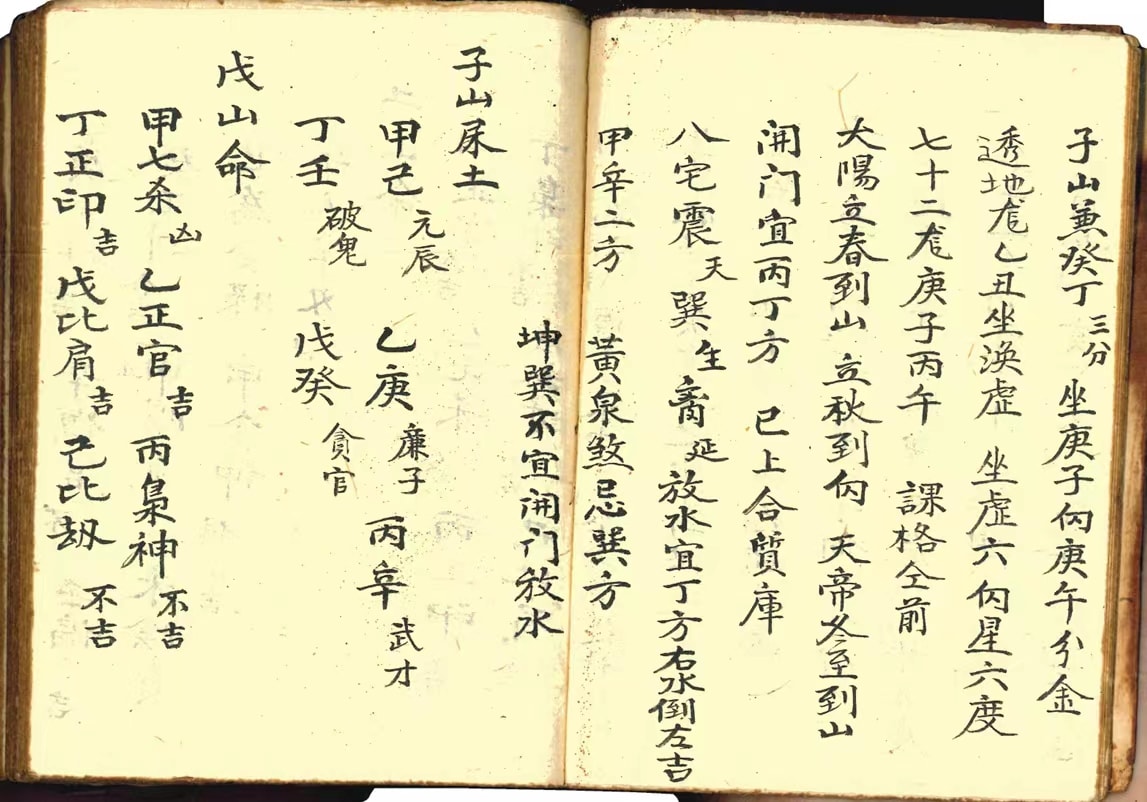 子山兼癸丁三分 坐庚子向庚午分金
透地龙乙丑坐渙虚 坐虚六向星六度
七十二龙庚子丙午 課格仝前
太陽立春到山 立秋到向 天帝冬至到山
開门宜丙丁方 已上合質庫
八宅震天 巽生 离延 放水宜丁方右水倒左吉
甲辛二方 黃泉煞忌巽方
坤巽不宜開门放水
子山尿土
甲己元辰 乙庚廉子 丙辛武才
丁壬破鬼 戊癸貪官
戊山命
甲七杀凶 乙正官吉 丙梟神不吉
丁正印吉 戊比肩吉 己比劫不吉